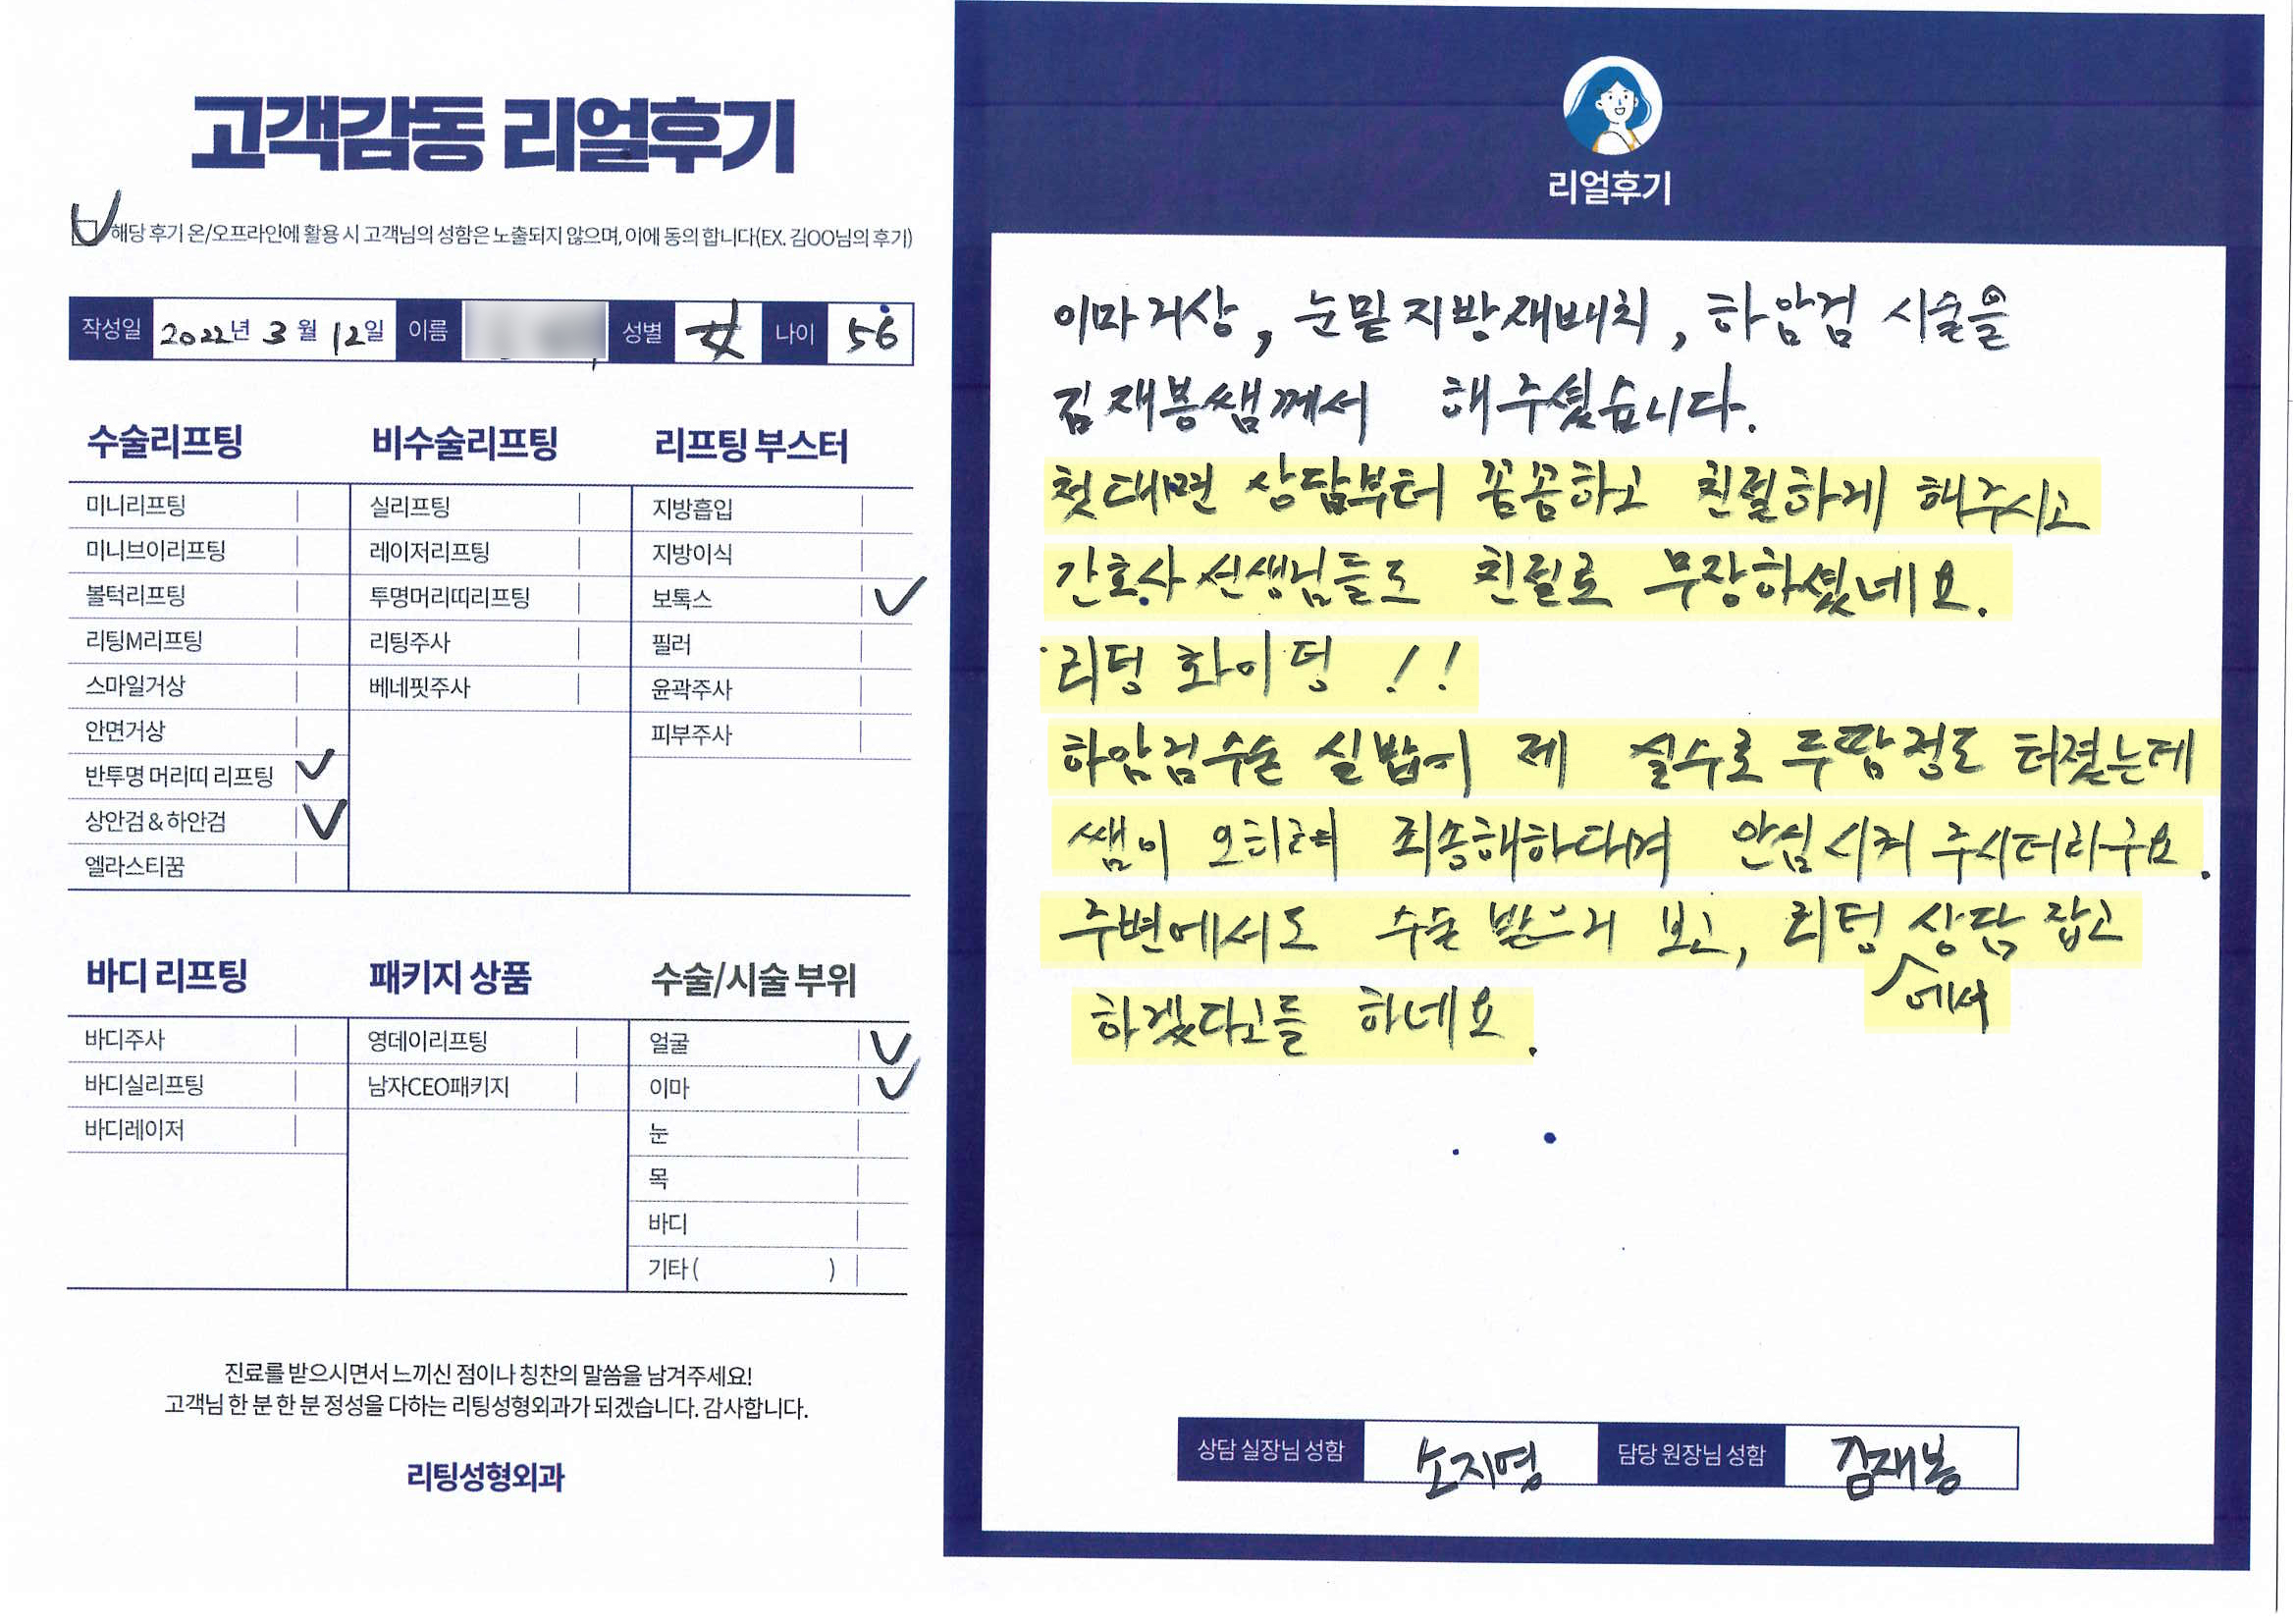 고객감동 리얼후기
해당 후기 온/오프라인에 활용 시 고객님의 성함은 노출되지 않으며, 이에 동의 합니다(EX. 김OO님의 후기)
작성일 2022년 3월 12일 이름 성별 女 나이 56
수술리프팅
미니리프팅
미니브이리프팅
볼턱리프팅
리팅M리프팅
스마일거상
안면거상
반투명 머리띠 리프팅
상안검 & 하안검
엘라스티꿈
비수술리프팅
실리프팅
레이저리프팅
투명머리띠리프팅
리팅주사
베네핏주사
리프팅 부스터
지방흡입
지방이식
보톡스
필러
윤곽주사
피부주사
바디 리프팅
바디주사
바디실리프팅
바디레이저
패키지 상품
영데이리프팅
남자CEO패키지
수술/시술 부위
얼굴
이마
눈
목
바디
기타 ( )
진료를 받으시면서 느끼신 점이나 칭찬의 말씀을 남겨주세요!
고객님 한 분 한 분 정성을 다하는 리팅성형외과가 되겠습니다. 감사합니다.
리팅성형외과
리얼후기
이마거상, 눈밑지방재배치, 하암검 시술을
김재봉쌤께서 해주셨습니다.
첫대면 상담부터 꼼꼼하고 친절하게 해주시고
간호사 선생님들도 친절로 무장하셨네요.
리팅 화이팅 !!
하암검수술 실밥이 제 실수로 두땀정도 터졌는데
쌤이 오히려 죄송해하다며 안심시켜 주시더라구요.
주변에서도 수술 받은거 보고, 리팅에서 상담 잡고
하겠다고들 하네요.
상담 실장님 성함 소지영 담당 원장님 성함 김재봉